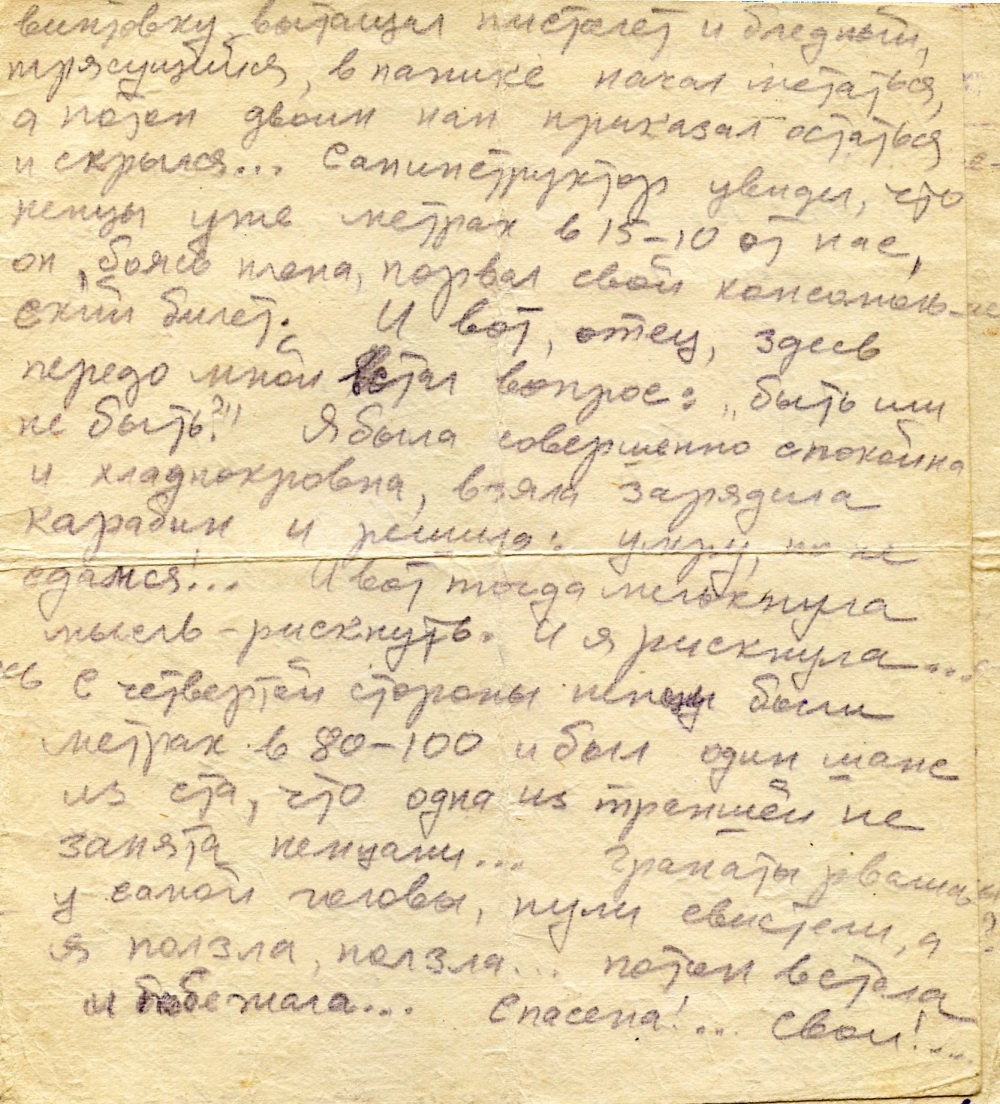 винтовку, вытащил пистолет и бледный,
трясущийся, в панике начал метаться,
а потом двоим нам приказал остаться
и скрылся... Санинструктор увидел, что
немцы уже метрах в 15-10 от нас,
он, боясь плена, порвал свой комсомоль-
ский билет. И вот, отец, здесь
передо мной встал вопрос: „быть или
не быть?" Я была совершенно спокойна
и хладнокровна, взяла зарядила
карабин и решила: умру, но не
сдамся!... И вот тогда мелькнула
мысль - рискнуть. И я рискнула...
С четвертой стороны немцы были
метрах в 80-100 и был один шанс
из ста, что одна из траншей не
занята немцами... Гранаты рвались
у самой головы, пули свистели, а
я ползла, ползла... потом встала
и побежала... Спасена!... Свои!....